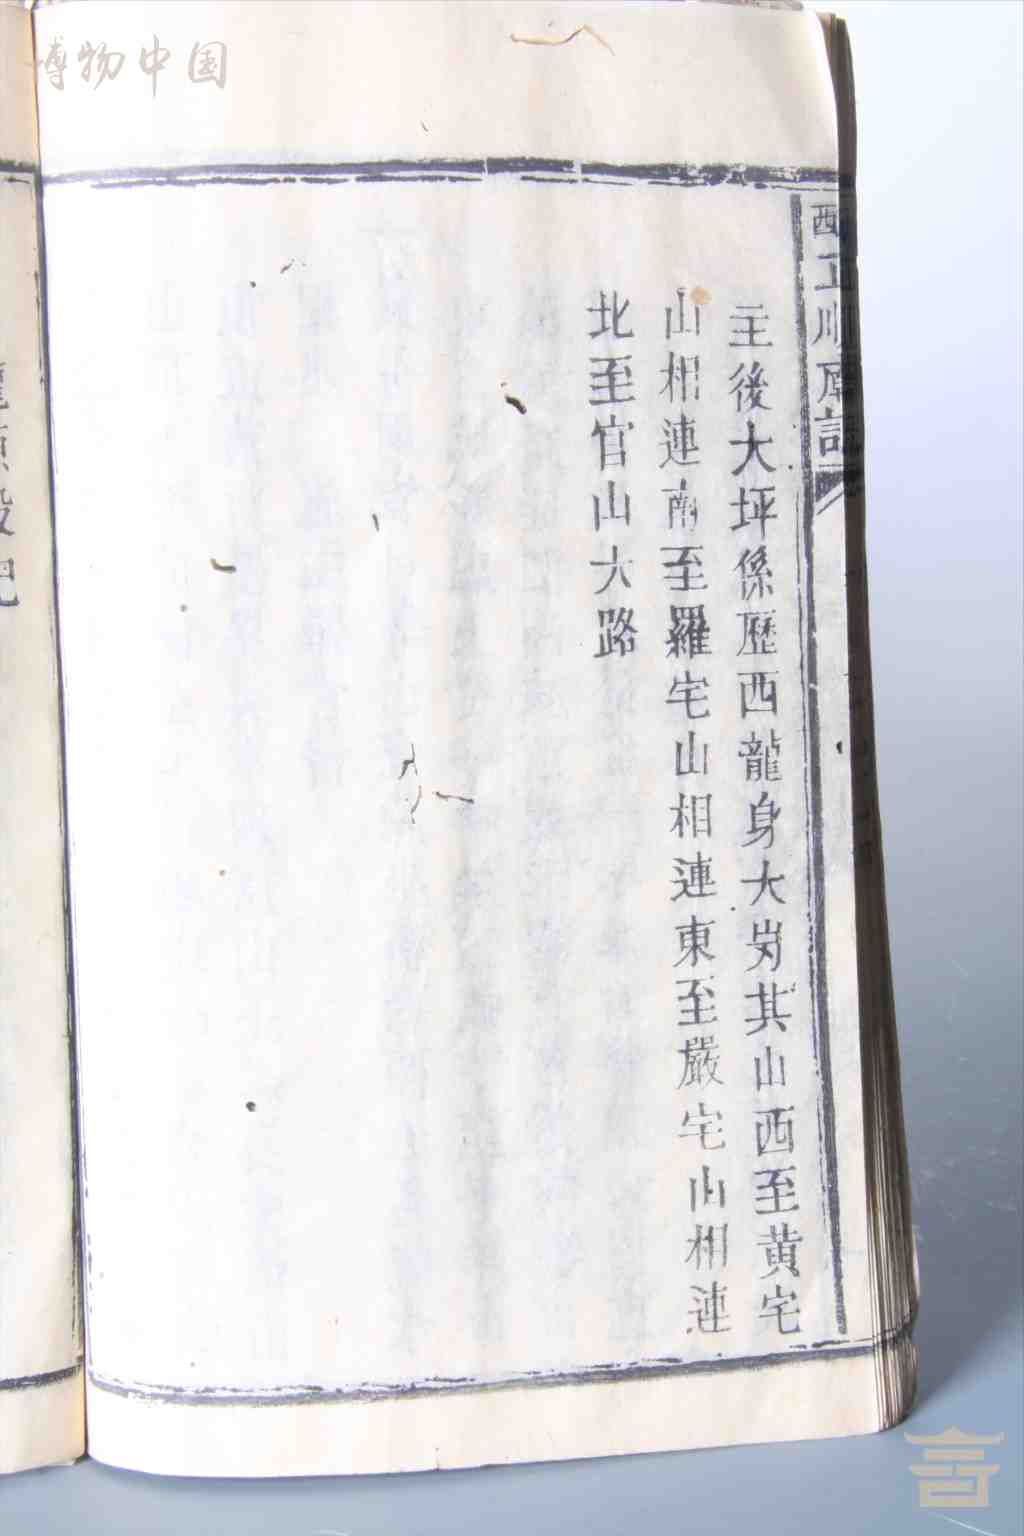 博物中国
主後大坪係歷西龍身大岃其山西至黄宅
山相連南至羅宅山相連東至嚴宅山相連
北至官山大路